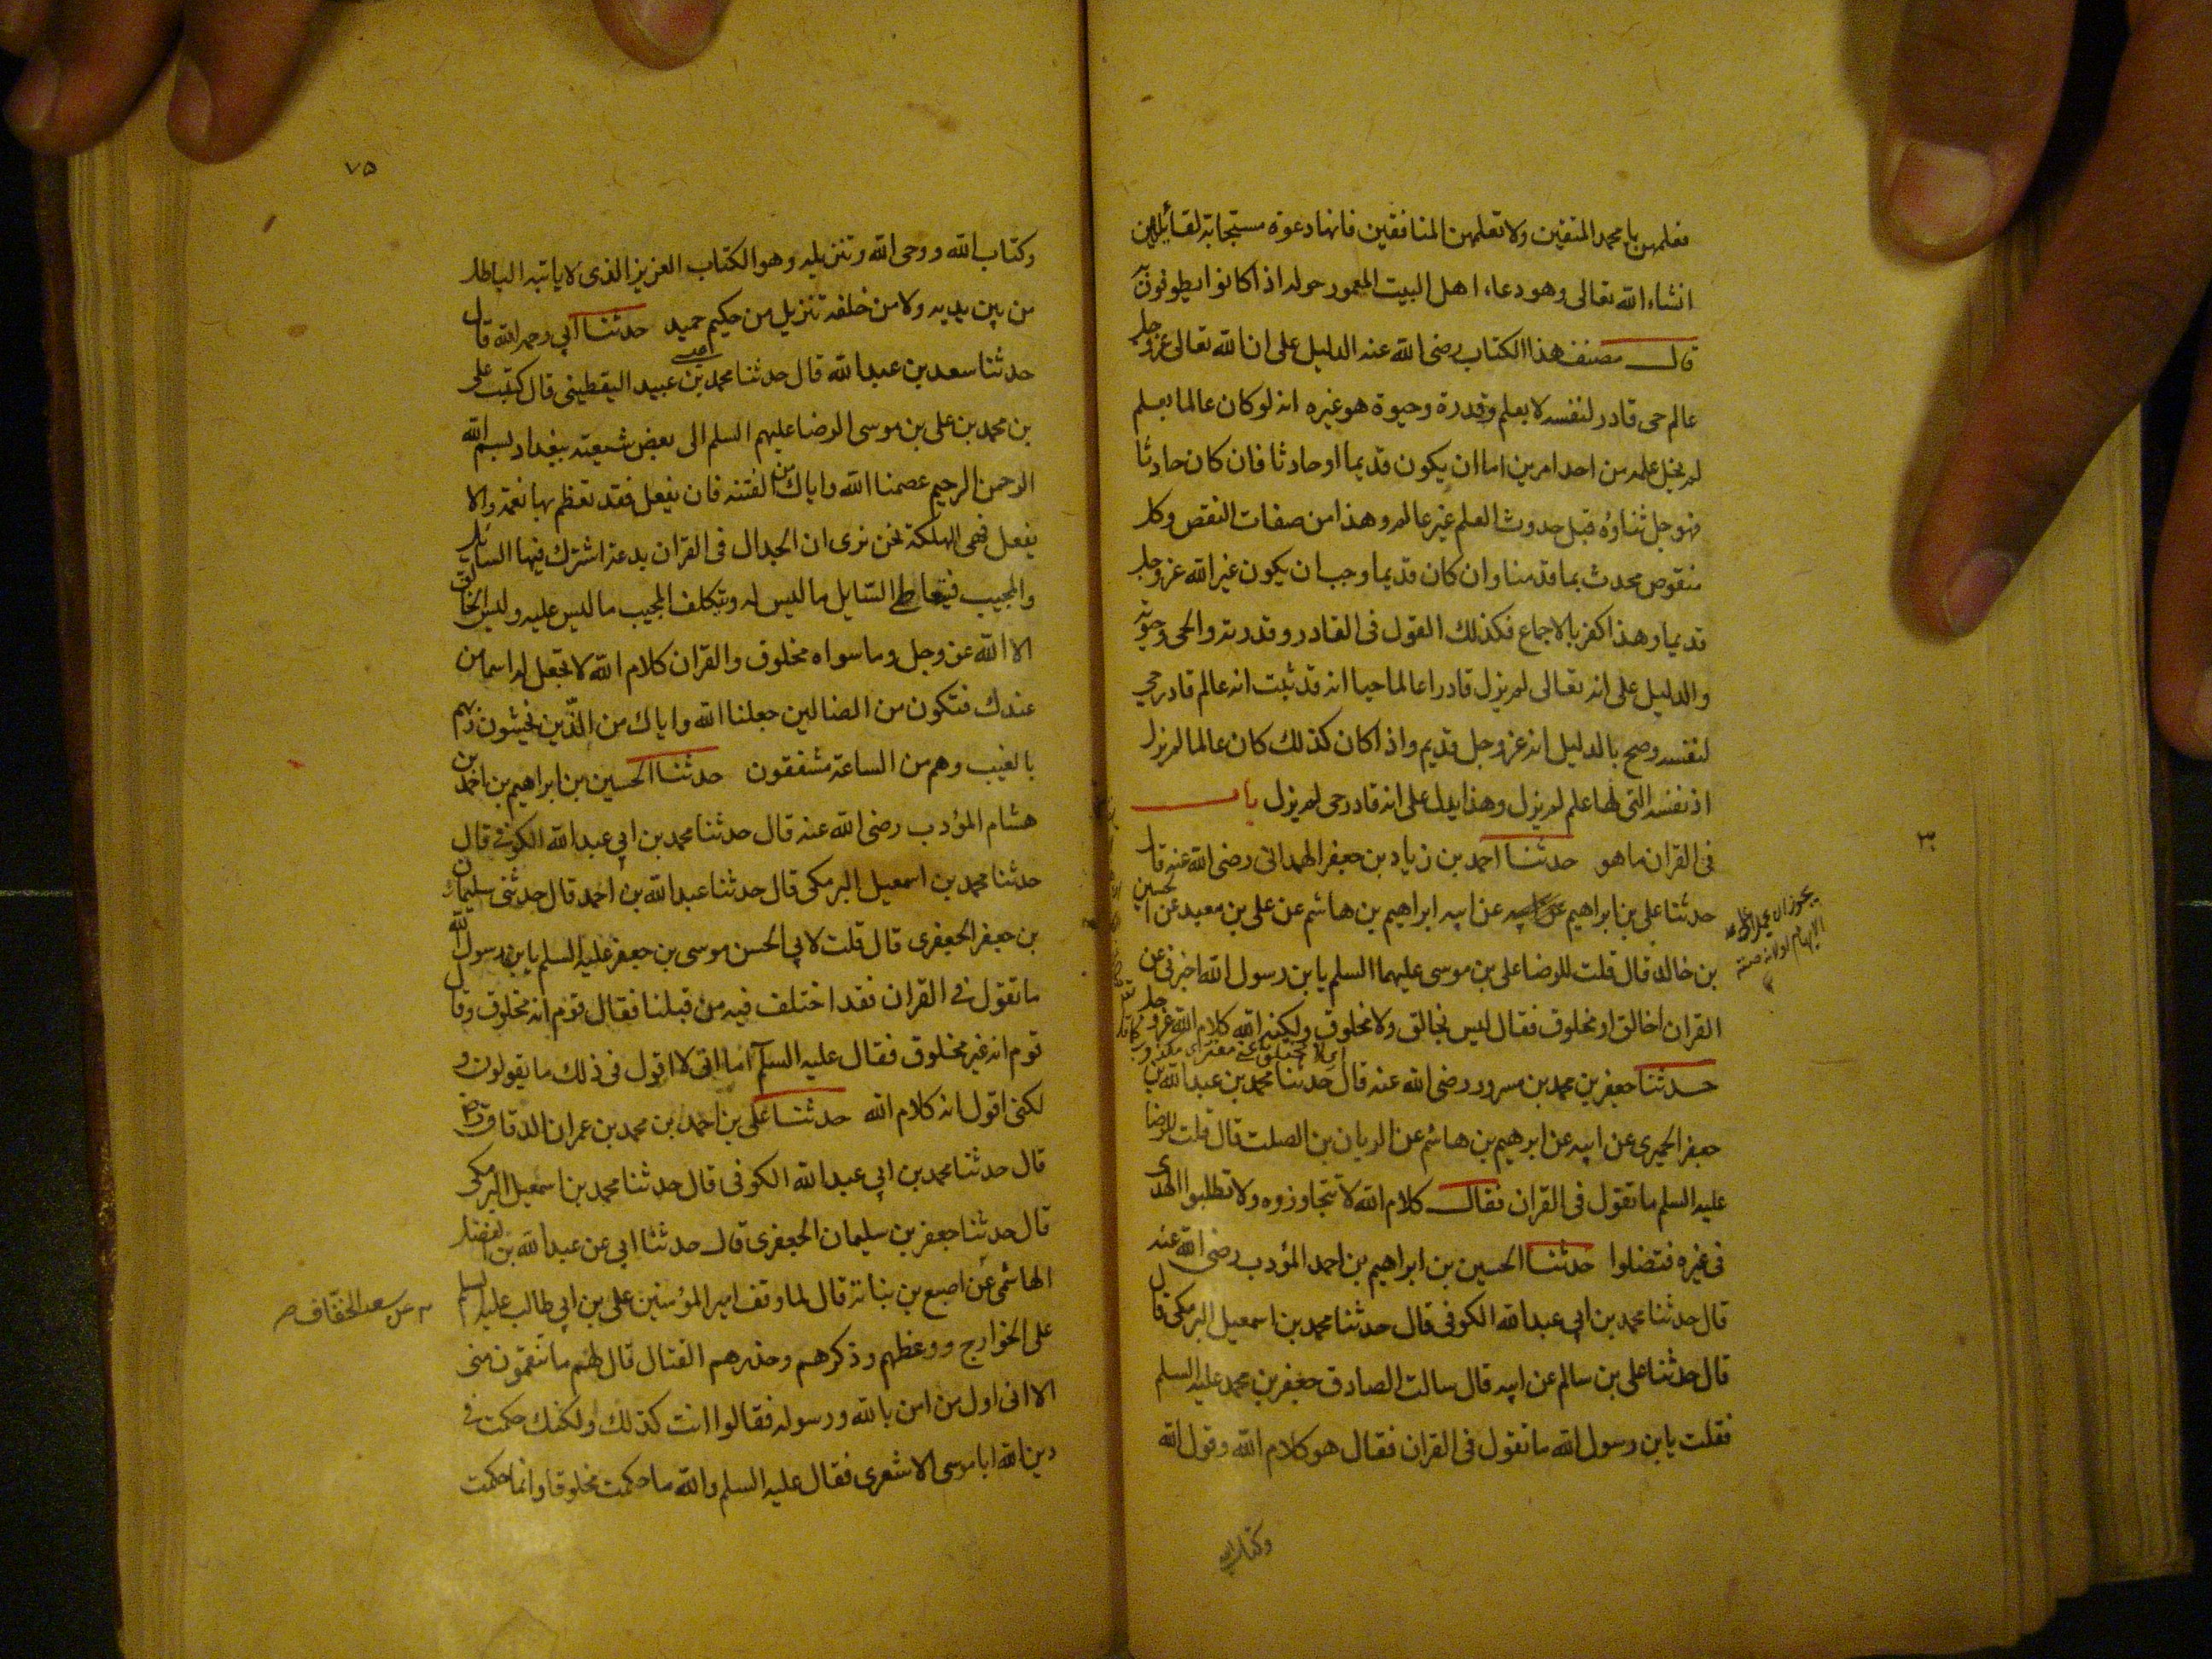 فعلمهن يا محمد المتقين ولا تعلمهن المنافقين فانها دعوة مستجابة لقائلهن
انشاء الله تعالى وهو دعاء اهل البيت المعمور حوله اذا كانوا يطوفون به
قال مصنف هذا الكتاب رضى الله عنه الدليل على ان الله تعالى عز وجل
عالم حى قادر لنفسه لا بعلم وقدرة وحيوة هو غيره انه لو كان عالما بعلم
لم يخل علمه من احد امرين اما ان يكون قديما او حادثا فان كان حادثا
فهو جل ثناؤه قبل حدوث العلم غير عالم وهذا من صفات النقص وكل
منقوص محدث بما قدمنا وان كان قديما وجب ان يكون غير الله عز وجل
قديما وهذا كفر بالاجماع فكذلك القول فى القادر وقدرته والحى وحيوته
والدليل على انه تعالى لم يزل قادرا عالما حيا انه قد ثبت انه عالم قادر حى
لنفسه وصح بالدليل انه عز وجل قديم واذا كان كذلك كان عالما لم يزل
اذ نفسه التى لها علم لم يزل وهذا يدل على انه قادر حى لم يزل باب
٣٠
فى القران ما هو حدثنا احمد بن زياد بن جعفر الهمدانى رضى الله عنه قال
حدثنا على بن ابراهيم عن ابيه ابراهيم بن هاشم عن على بن معبد عن الحسين
بن خالد قال قلت للرضا على بن موسى عليهما السلم يا بن رسول الله اخبرنى عن
القران اخالق او مخلوق فقال ليس بخالق ولا مخلوق ولكنه كلام الله عز وجل
حدثنا جعفر بن محمد بن مسرور رضى الله عنه قال حدثنا محمد بن عبد الله بن
جعفر الحميرى عن ابيه عن ابرهيم بن هاشم عن الريان بن الصلت قال قلت للرضا
عليه السلم ما تقول فى القران فقال كلام الله لا تتجاوزوه ولا تطلبوا الهدى
فى غيره فتضلوا حدثنا الحسين بن ابراهيم بن احمد المؤدب رضى الله عنه
قال حدثنا محمد بن ابى عبد الله الكوفى قال حدثنا محمد بن اسمعيل البرمكى قال
قال حدثنا على بن سالم عن ابيه قال سالت الصادق جعفر بن محمد عليه السلم
فقلت يا بن رسول الله ما تقول فى القران فقال هو كلام الله وقول الله
وكتاب الله
٧٥
وكتاب الله ووحى الله وتنزيله وهو الكتاب العزيز الذى لا ياتيه الباطل
من بين يديه ولا من خلفه تنزيل من حكيم حميد حدثنا ابى رحمه الله قال
حدثنا سعد بن عبد الله قال حدثنا محمد بن عيسى بن عبيد اليقطينى قال كتب على
بن محمد بن على بن موسى الرضا عليهم السلم الى بعض شيعته ببغداد بسم الله
الرحمن الرحيم عصمنا الله واياك من الفتنة فان يفعل فقد تعظم بها نعمة والا
يفعل فهى الهلكة نحن نرى ان الجدال فى القران بدعة اشترك فيها السايل
والمجيب فيتعاطى السايل ما ليس له ويتكلف المجيب ما ليس عليه وليس الخالق
الا الله عز وجل وما سواه مخلوق والقران كلام الله لا تجعل له اسما من
عندك فتكون من الضالين جعلنا الله واياك من الذين يخشون ربهم
بالغيب وهم من الساعة مشفقون حدثنا الحسين بن ابراهيم بن احمد بن
هشام المؤدب رضى الله عنه قال حدثنا محمد بن ابى عبد الله الكوفى قال
حدثنا محمد بن اسمعيل البرمكى قال حدثنا عبد الله بن احمد قال حدثنى سليمان
بن جعفر الجعفرى قال قلت لابى الحسن موسى بن جعفر عليه السلم يا بن رسول الله
ما تقول فى القران فقد اختلف فيه من قبلنا فقال قوم انه مخلوق وقال
قوم انه غير مخلوق فقال عليه السلم اما انى لا اقول فى ذلك ما يقولون و
لكنى اقول انه كلام الله حدثنا على بن احمد بن محمد بن عمران الدقاق رضه
قال حدثنا محمد بن ابى عبد الله الكوفى قال حدثنا محمد بن اسمعيل البرمكى
قال حدثنا جعفر بن سليمان الجعفرى قال حدثنا ابى عن عبد الله بن الفضل
الهاشمى عن اصبغ بن نباتة قال لما وقف امير المؤمنين على بن ابى طالب عليه السلم
عن سعد الخفاف
على الخوارج ووعظهم وذكرهم وحذرهم القتال قال لهم ما تنقمون منى
الا انى اول من امن بالله ورسوله فقالوا انت كذلك ولكنك حكمت فى
دين الله ابا موسى الاشعرى فقال عليه السلم والله ما حكمت مخلوقا وانما حكمت